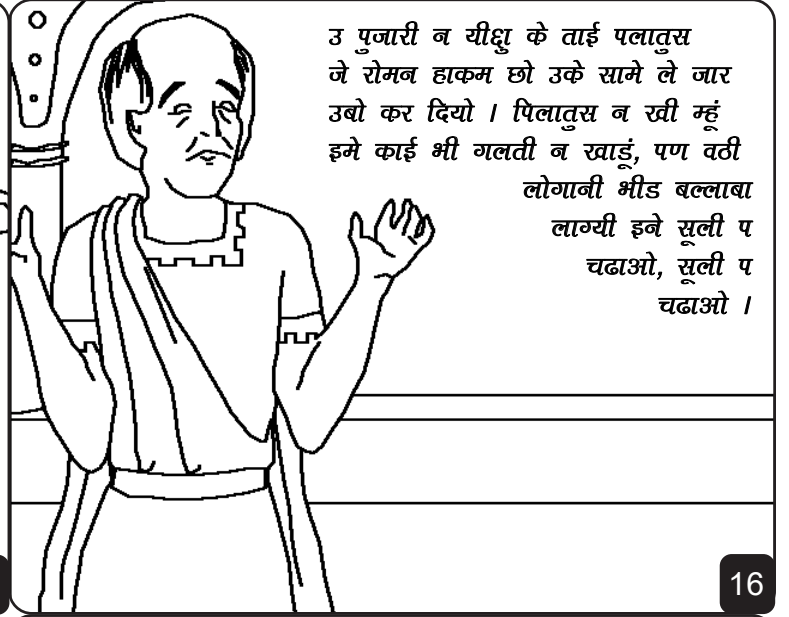 उ पुजारी न यीशु के ताई पलातुस
जे रोमन हाकम छो उके सामे ले जार
उबो कर दियो । पिलातुस न खी म्हूं
इमे काई भी गलती न खाडूं, पण वठी
लोगानी भीड बल्लाबा
लाग्यी इने सूली प
चढाओ, सूली प
चढाओ ।
16